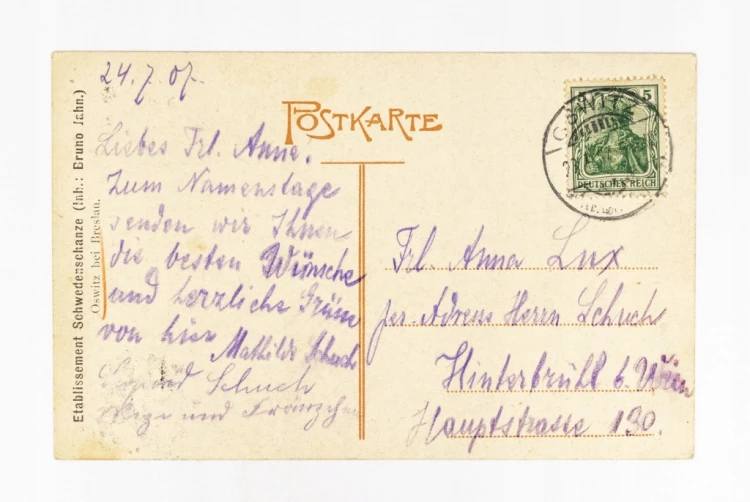 Etablissement Schwedenschanze (Inh.: Bruno Jahn.)
Oswitz bei Breslau.
24.7.07.
POSTKARTE
Liebes Frl. Anne.
Zum Namenstage
senden wir Ihnen
die besten Wünsche
und herzliche Grüsse
von hier
Mathilde Schuch
Schuch
und Fränzchen
5
OSWITZ
DEUTSCHES REICH
Frl. Anna Lux
per Adresse Herrn Schuch
Hinterbrühl b. Wien
Hauptstrasse 130.